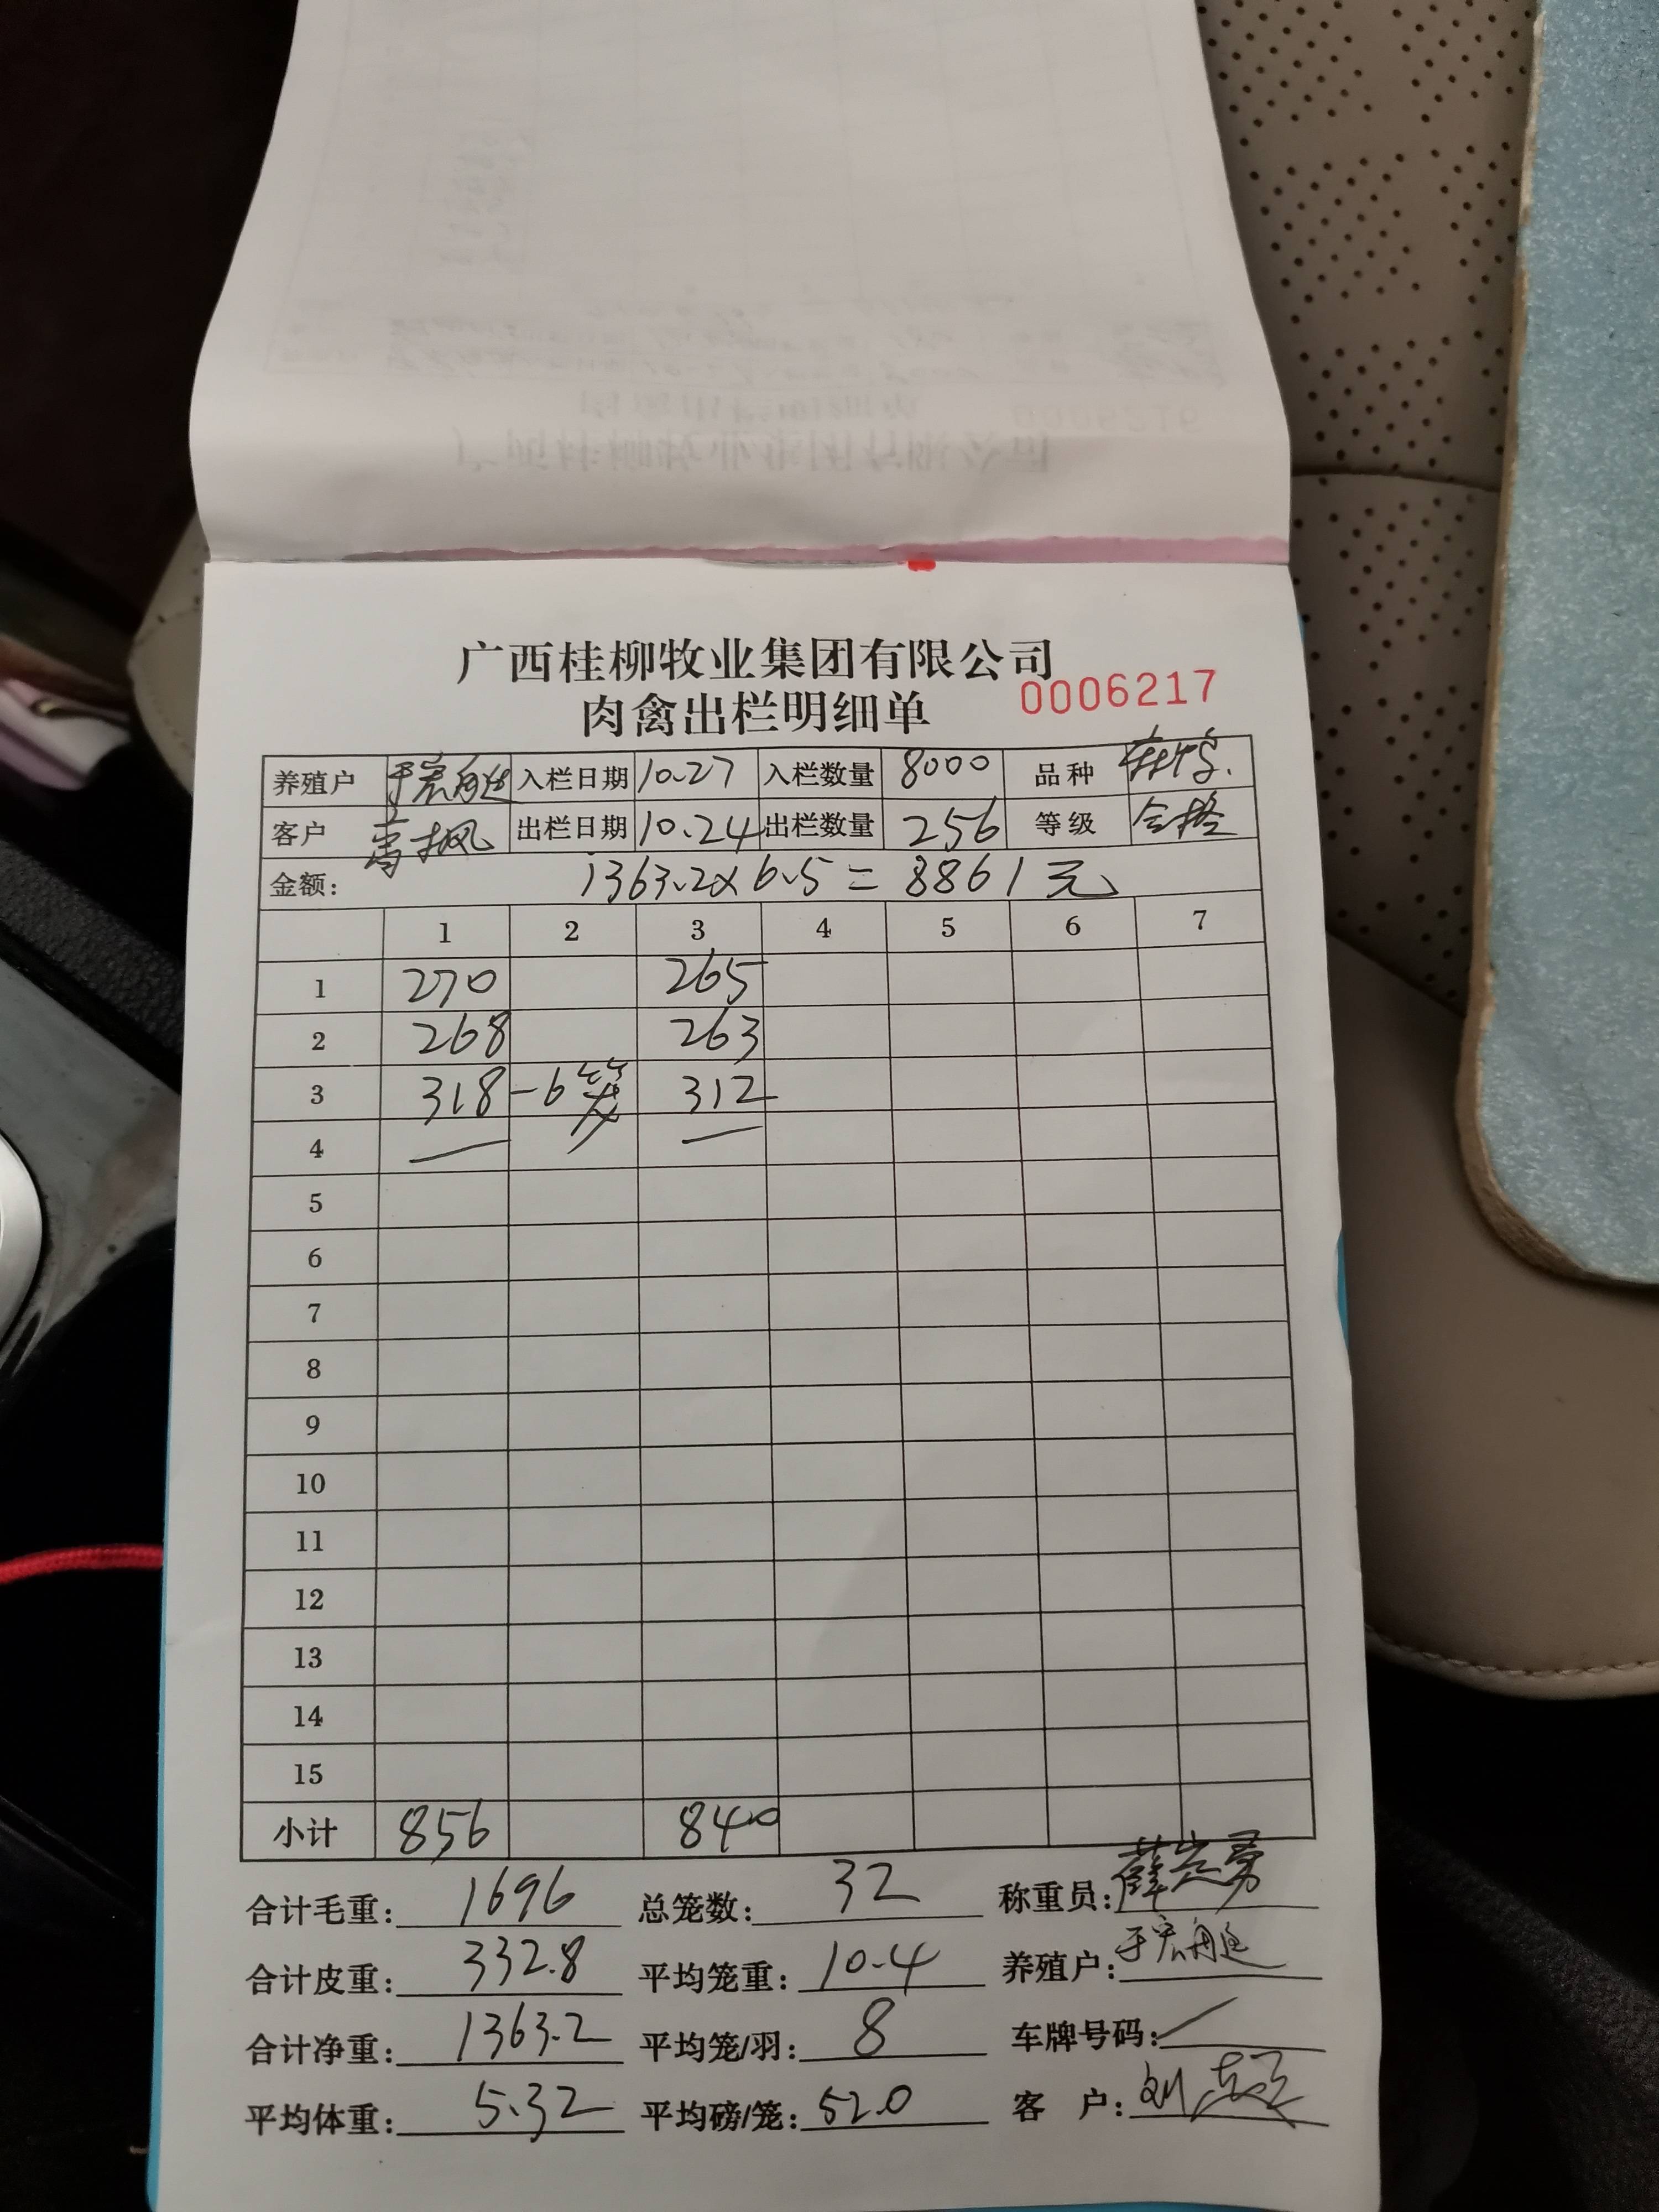 广西桂柳牧业集团有限公司
肉禽出栏明细单 0006217
养殖户 于宏海 入栏日期 10.27 入栏数量 8000 品种
客户 扬风 出栏日期 10.24 出栏数量 256 等级 合格
金额: 1363.2×6.5=8861元
1 2 3 4 5 6 7
1 270 265
2 268 263
3 318 -6笼 312
4 — —
5
6
7
8
9
10
11
12
13
14
15
小计 856 840
合计毛重: 1696 总笼数: 32 称重员: 薛
合计皮重: 332.8 平均笼重: 10.4 养殖户: 于宏
合计净重: 1363.2 平均笼/羽: 8 车牌号码: /
平均体重: 5.32 平均磅/笼: 52.0 客 户: 刘